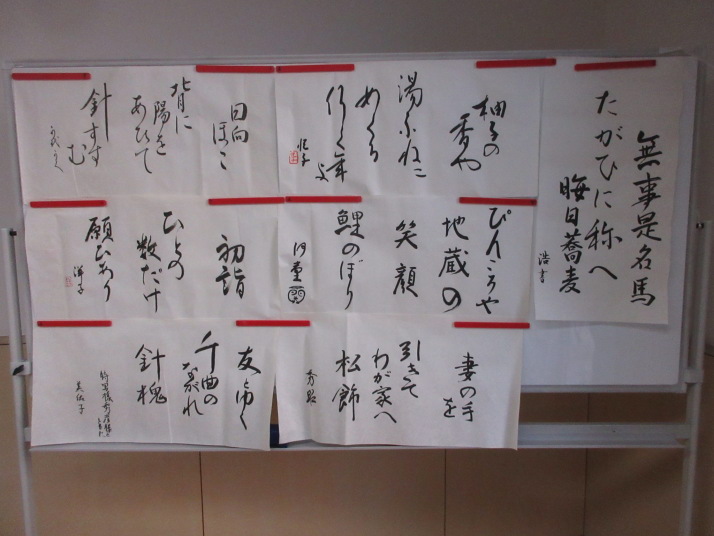 無事是名馬
たがひに称へ
晦日蕎麦
浩書
柚子の
香や
湯ぶねに
めぐる
行く年
よ
日向
ぼこ
背に
陽を
あびて
針すす
む
ぴんころや
地蔵の
笑顔
鯉のぼり
初詣
ひとの
数だけ
願ひあり
洋子
妻の手
を
引きて
わが家へ
松飾
友とゆく
千曲の
流れ
針槐
美依子